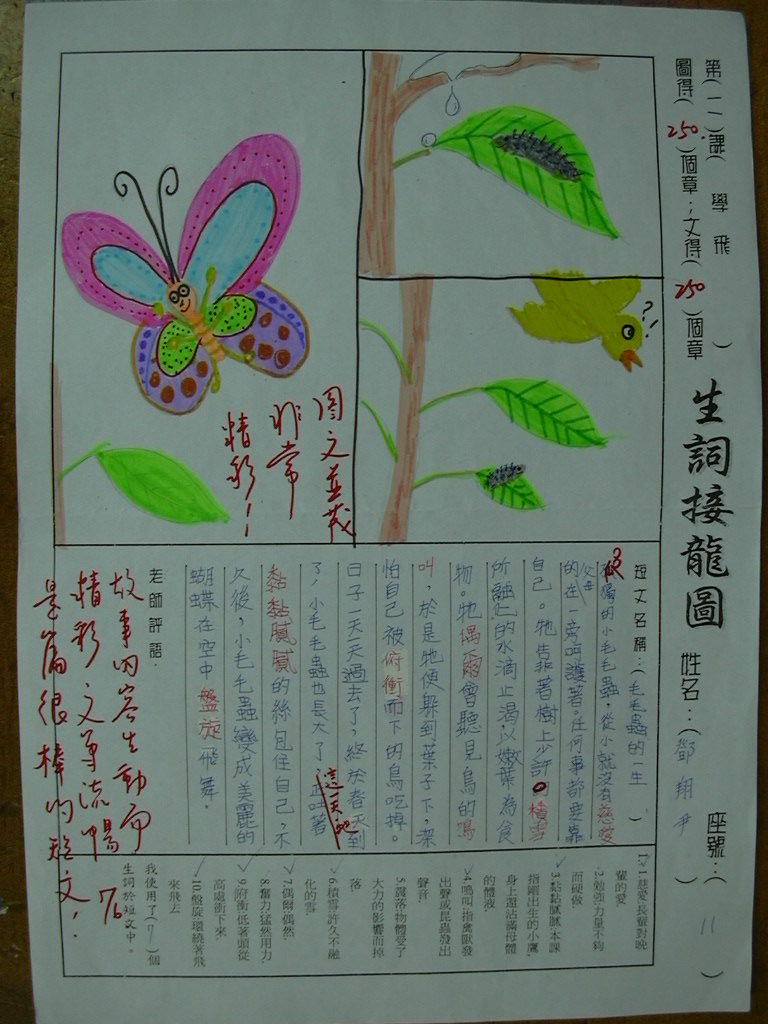 第(一)課(學飛)
圖得(250.)個章；文得(250)個章
生詞接龍圖 姓名：(鄧翔尹) 座號：(11)
圖文並茂
非常
精彩！
短文名稱：(毛毛蟲的一生)
孤獨的小毛毛蟲，從小就沒有慈愛
的父母在一旁呵護著。任何事都要靠
自己。牠靠著樹上少許的積雪
所融化的水滴止渴以嫩葉為食
物。牠偶爾會聽見鳥的鳴
叫，於是牠便躲到葉子下，深
怕自己被俯衝而下的鳥吃掉。
日子一天天過去了，終於春天到
了，小毛毛蟲也長大了這天牠正吐著
黏黏膩膩的絲包住自己，不
久後，小毛毛蟲變成美麗的
蝴蝶在空中盤旋飛舞。
老師評語：
故事內容生動而
精彩，文筆流暢
是篇很棒的短文！
1.慈愛:長輩對晚
輩的愛
2.勉強:力量不夠
而硬做
3.黏黏膩膩:本課
指剛出生的小鷹
身上還沾滿母體
的體液
4.鳴叫:指禽獸發
出聲或昆蟲發出
聲音
5.飄落:物體受了
大力的影響而掉
落
6.積雪:許久不融
化的雪.
7.偶爾:偶然
8.奮力:猛然用力.
9.俯衝:低著頭從
高處衝下來.
10.盤旋:環繞著飛
來飛去
我使用了(7)個
生詞於短文中。